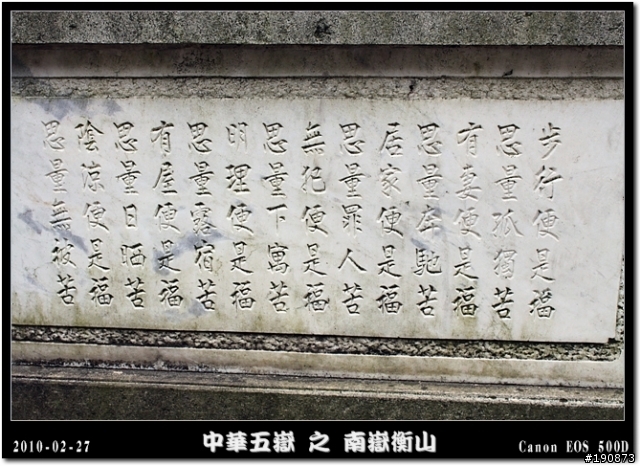 步行便是福
思量孤獨苦
有妻便是福
思量奔馳苦
居家便是福
思量罪人苦
無犯便是福
思量下寓苦
明理便是福
思量露宿苦
有屋便是福
思量日晒苦
陰涼便是福
思量無被苦
2010-02-27
中華五嶽 之 南嶽衡山
Canon EOS 500D
#190873